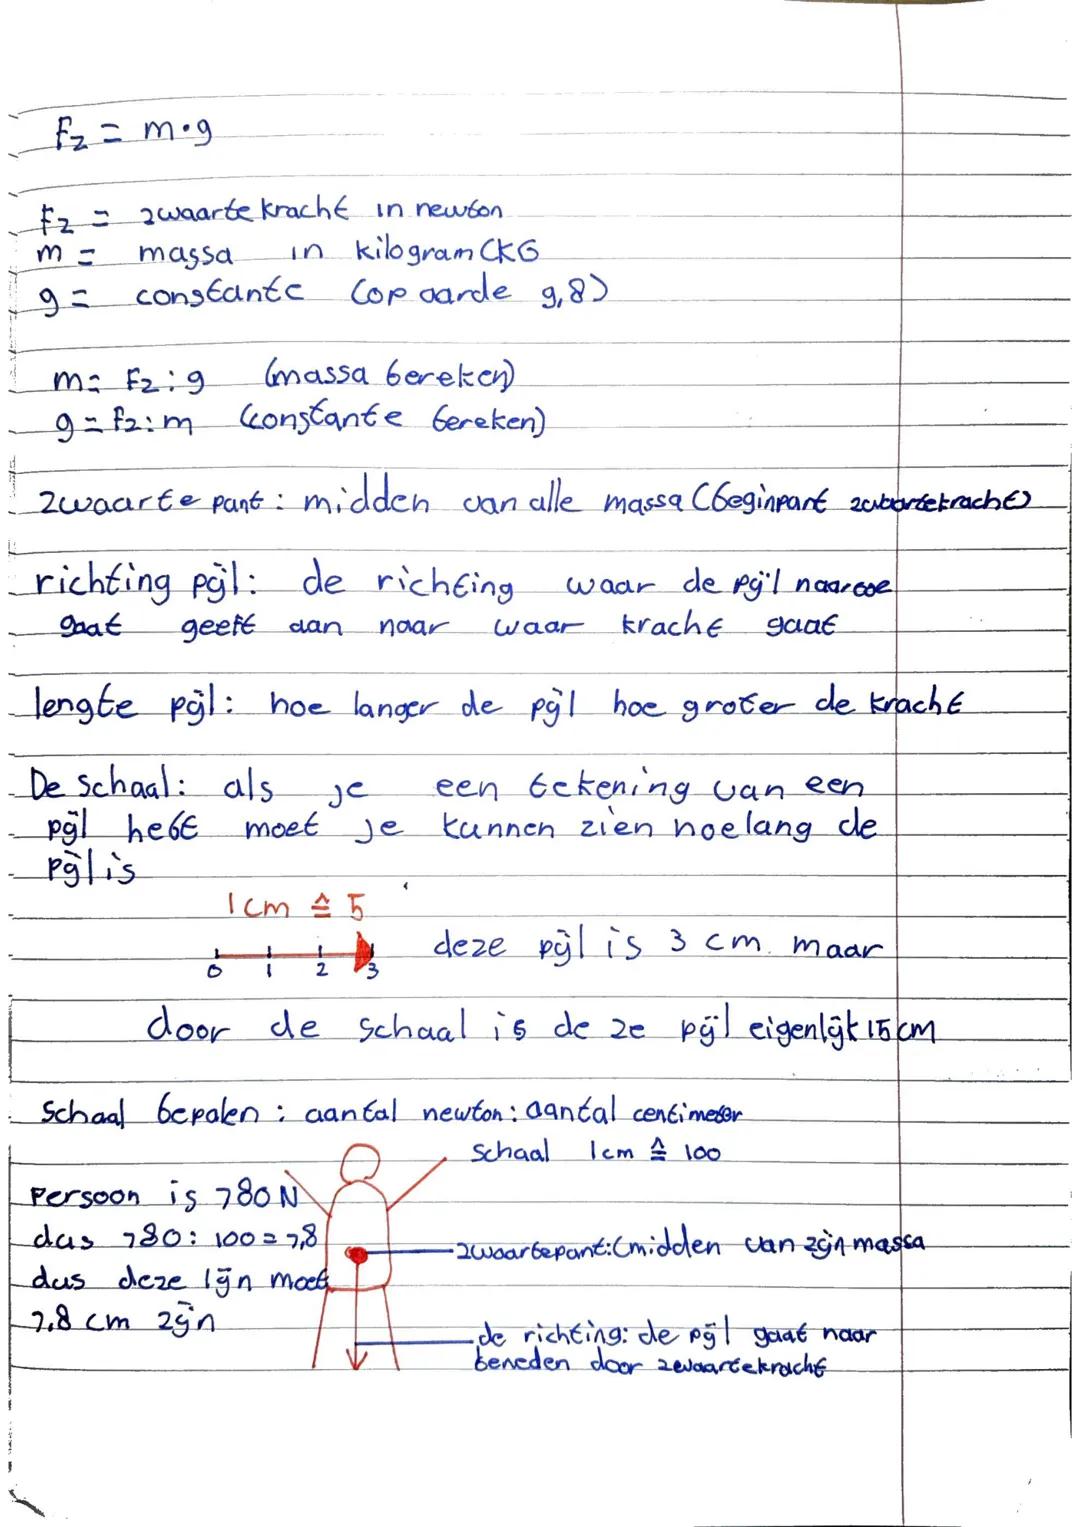 Fz = m·g
Fz = zwaartekracht in newton
m = massa in kilogram (KG
g = constante (op aarde 9,8)
m = Fz : g (massa bereken)
g = Fz : m (constante bereken)
zwaartepunt : midden van alle massa (beginpunt zwaartekracht)
richting pijl : de richting waar de pijl naartoe
gaat geeft aan naar waar kracht gaat
lengte pijl : hoe langer de pijl hoe groter de kracht
De schaal : als je een tekening van een
pijl hebt moet je kunnen zien hoelang de
pijl is
1 cm ≙ 5
0 1 2 3 deze pijl is 3 cm. maar
door de schaal is deze pijl eigenlijk 15 cm
schaal bepalen : aantal newton : aantal centimeter
schaal 1cm ≙ 100
Persoon is 780 N
dus 780 : 100 = 7,8
zwaartepunt: (midden van zijn massa
dus deze lijn moet
7,8 cm zijn
de richting: de pijl gaat naar
beneden door zwaartekracht